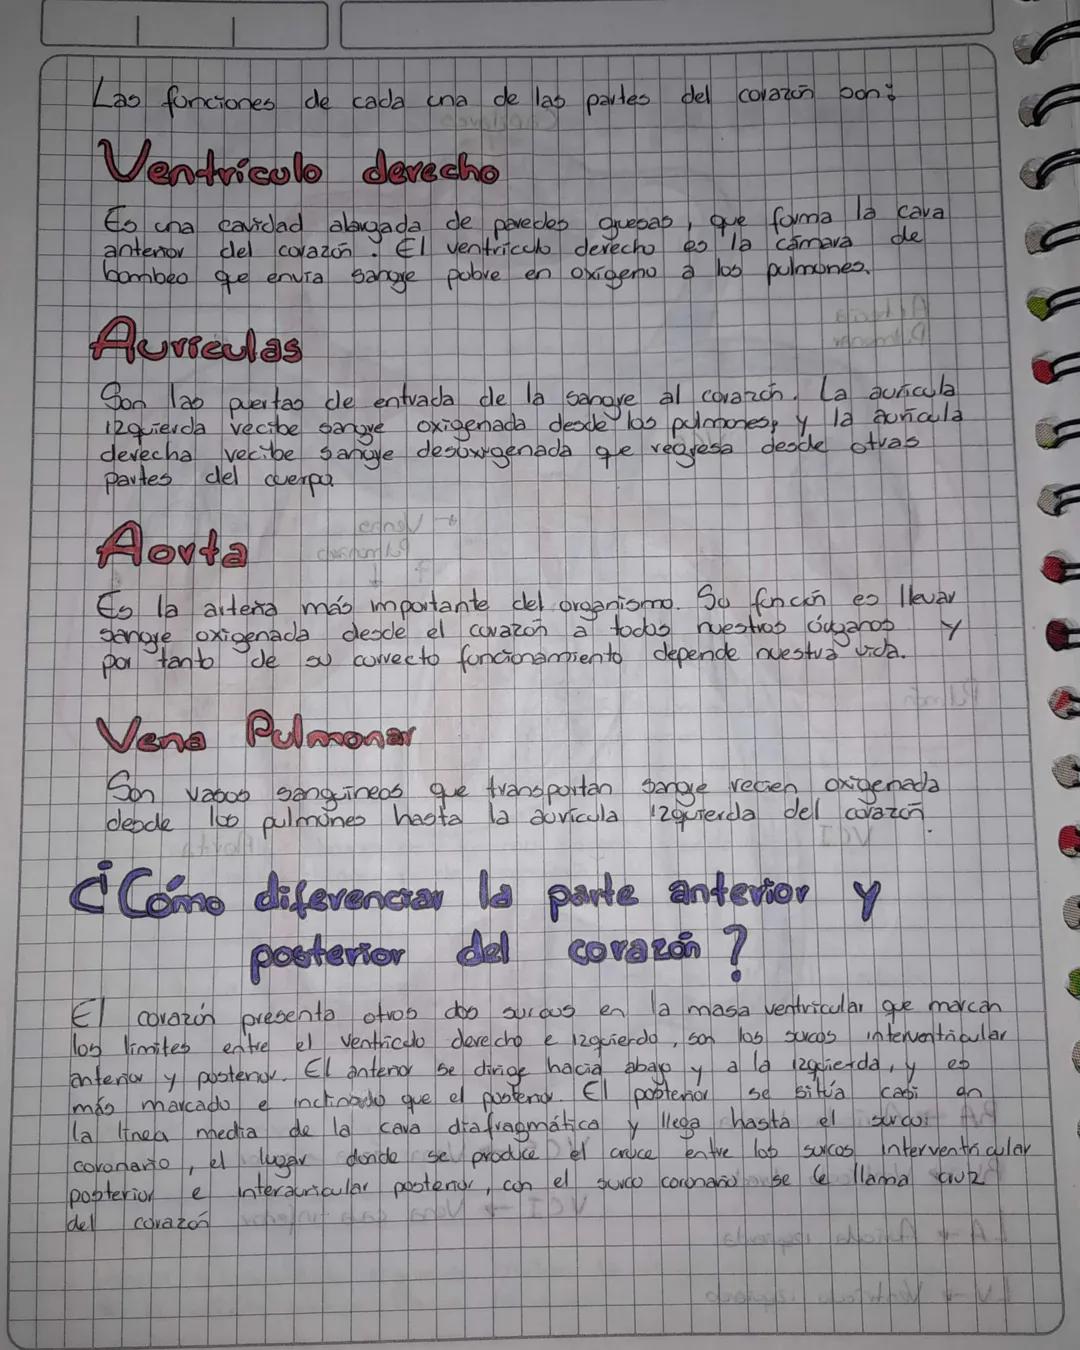 Las funciones de cada una de las partes del corazón son:
Ventrículo derecho
Es una cavidad alargada de paredes guesas, que forma la cara
anterior del corazón. El ventriculo derecho es la cámara de
bombeo que envía sangre pobre en oxígeno a los pulmones.
Aurículas
Son las puertas de entrada de la sangre al corazón. La aurícula
izquierda recibe sangre oxigenada desde los pulmones, y la aurícula
derecha recibe sangre desoxigenada que regresa desde otras
partes del cuerpo
Aorta
Es la arteria más importante del organismo. Su función es llevar
sangre oxigenada desde el corazón a todos nuestros órganos y
por tanto de su correcto funcionamiento depende nuestra vida.
Vena Pulmonar
Son vasos sanguíneos que transportan sangre recien oxigenada
desde los pulmones hasta la aurícula izquierda del corazón.
¿Cómo diferenciar la parte anterior y
posterior del corazón?
El corazón presenta otros dos surcos en la masa ventricular que marcan
los límites entre el ventriculo derecho e izquierdo, son los surcos interventricular
anterior y posterior. El anterior se dirige hacia abajo y a la izquierda, y es
más marcado e inclinado que el posterior. El posterior se sitúa casi en
la línea media de la cara diafragmática y llega hasta el surco
coronario, el lugar donde se produce el cruce entre los surcos interventricular
posterior e interauricular posterior, con el surco coronario se le llama cruz
del corazón